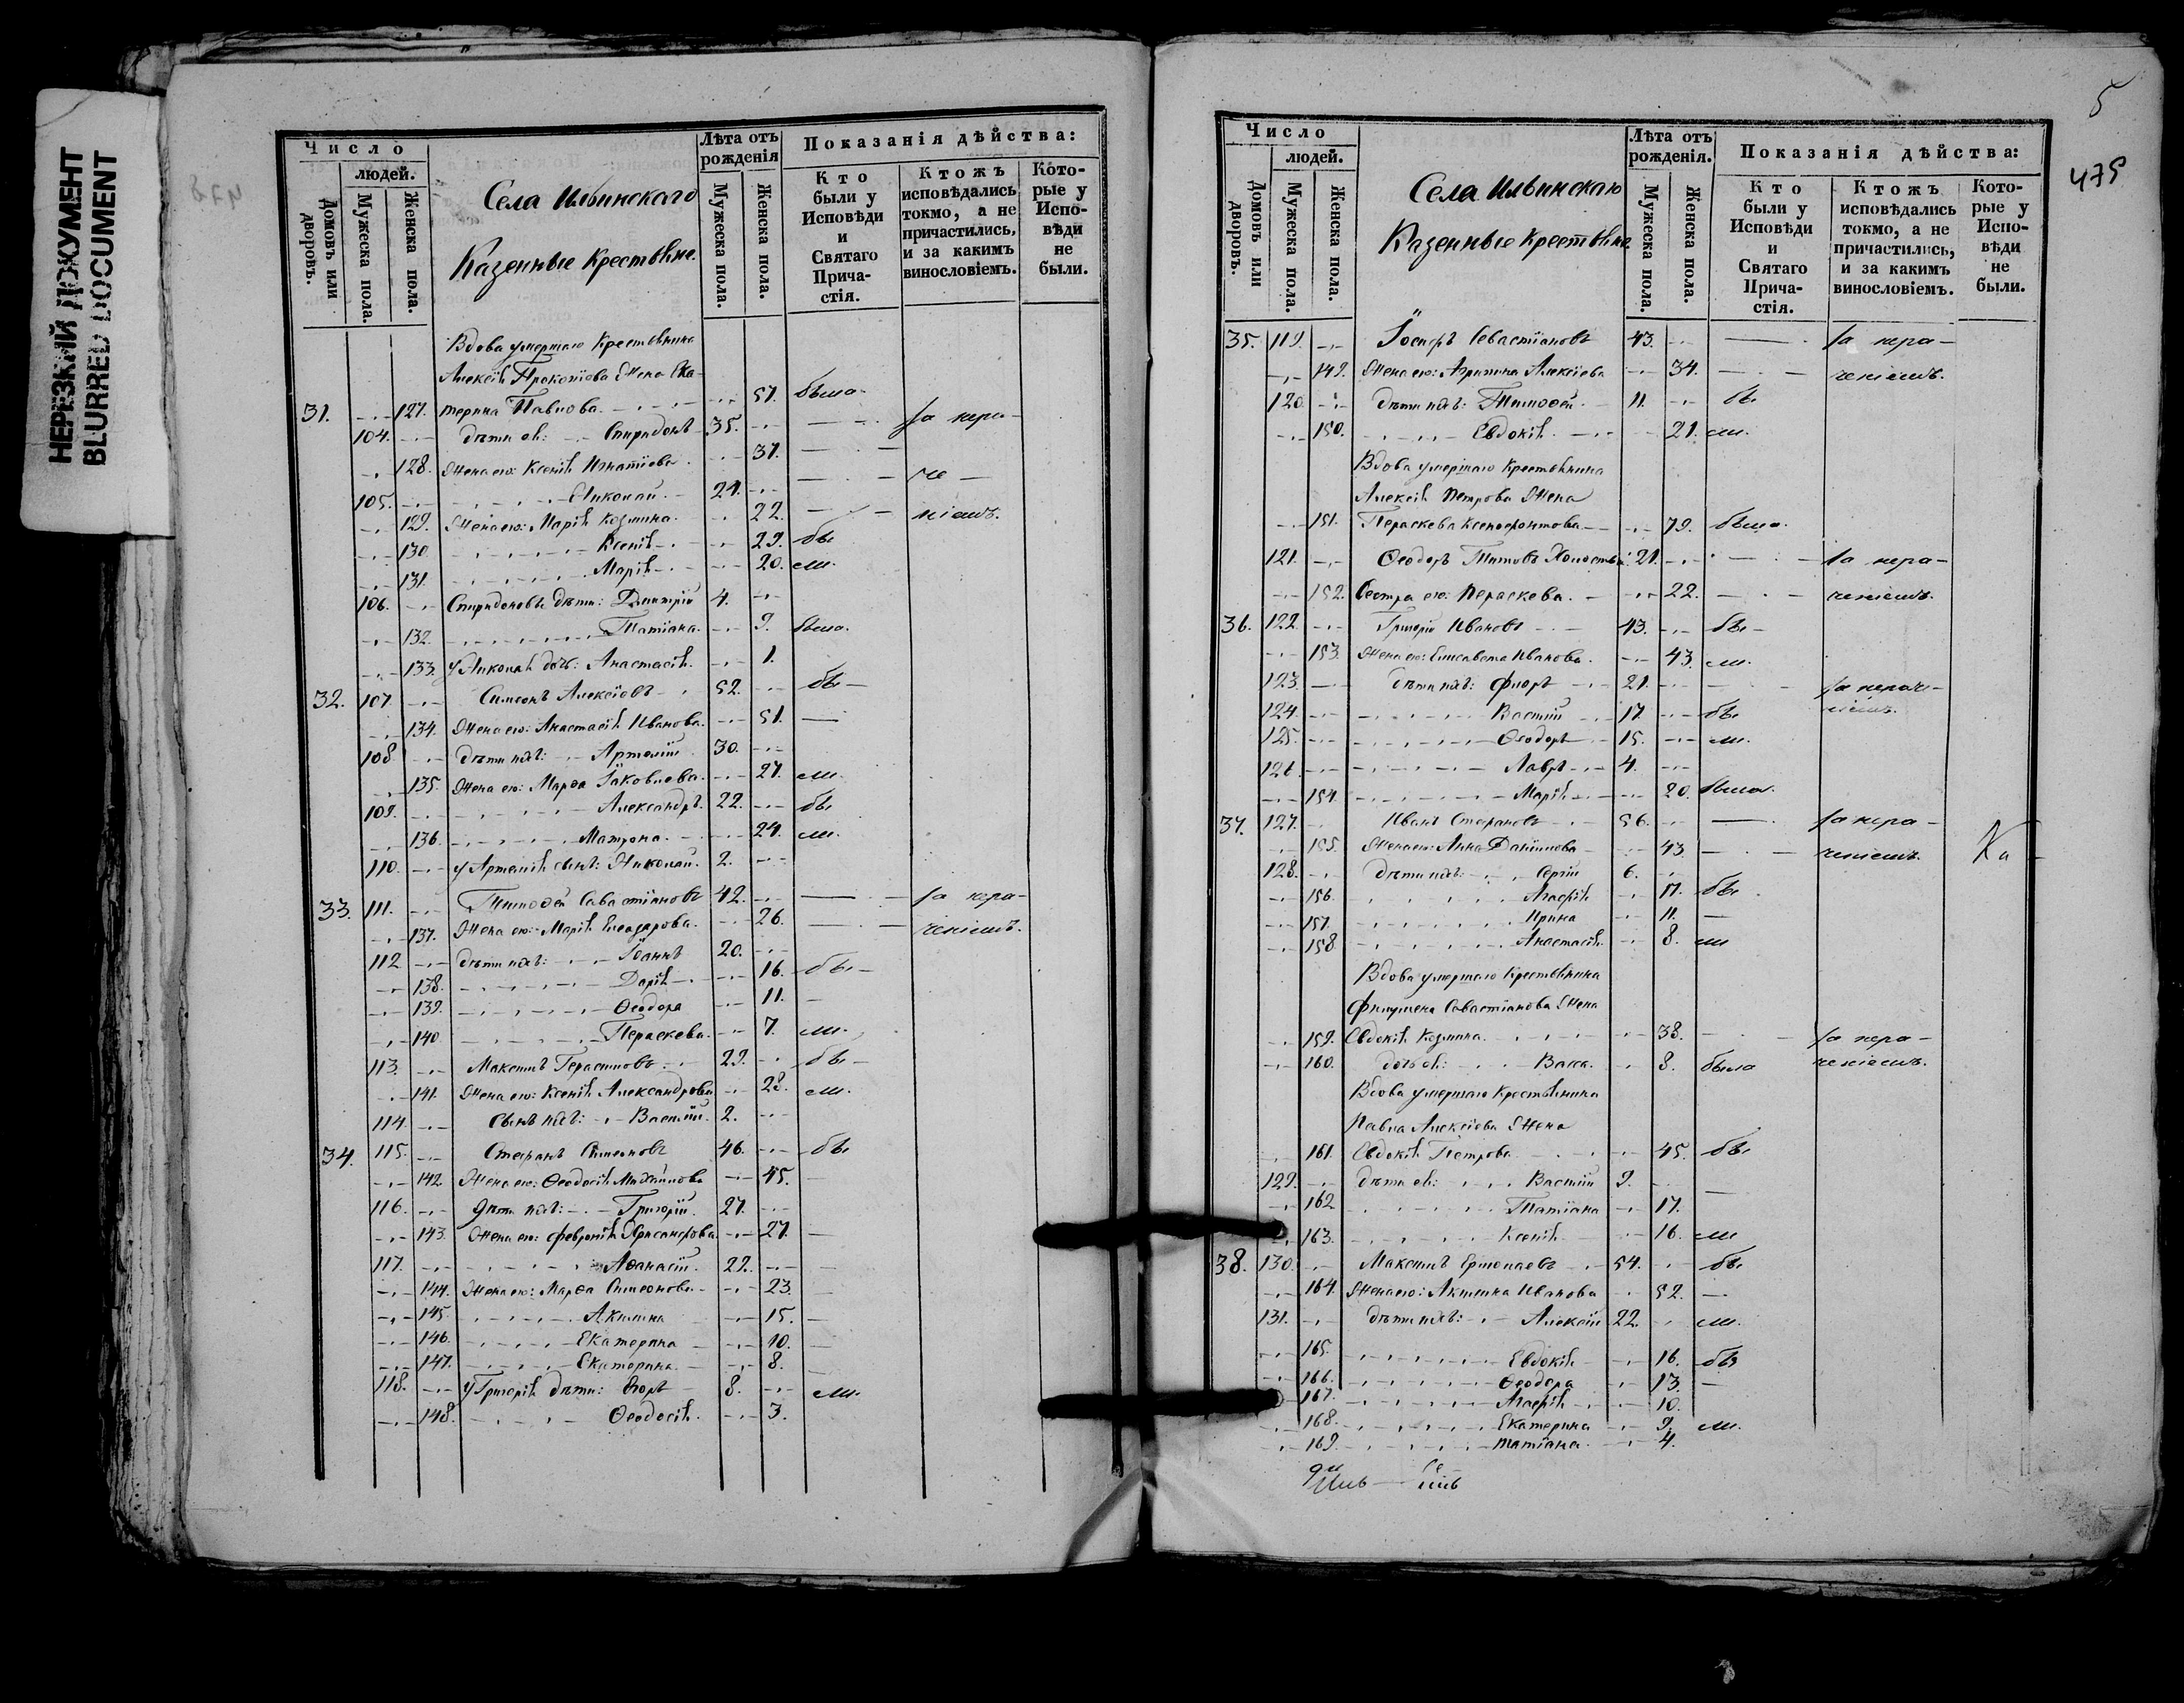 НЕРЕЗКИЙ ДОКУМЕНТ
BLURRED DOCUMENT
Число
людей.
Домовъ или дворовъ.
Мужеска пола.
Женска пола.
Села Ильинскаго
Казенные Крестьяне
Лѣта отъ рожденія
Мужеска пола.
Женска пола.
Показанія дѣйства:
Кто были у Исповѣди и Святаго Прича-стія.
Ктожъ исповѣдались токмо, а не причастились, и за какимъ винословіемъ.
Кото-рые у Испо-вѣди не были.
Вдова умершаго Крестьянина
Алексѣя Прокопіева Жена Ека-
31. 127. терина Павлова 57. была
104. дѣти ея: Спиридонъ 35. за нера-
128. Жена его: Ксенія Игнатіева 37.
105. Николай 24. че
129. Жена его: Марія Козмина 22. ніемъ.
130. Ксенія 29. бы
131. Марія 20. ли.
106. Спиридоновы дѣти: Димитрій 4.
132. Татіана 9. была.
133. у Николая дочь: Анастасія 1.
32. 107. Симеонъ Алексіевъ 52. бы
134. Жена его: Анастасія Иванова 51.
108. дѣти ихъ: Артемій 30.
135. Жена его: Марѳа Іаковлева 27. ли.
109. Александръ 22. бы
136. Матрона 24. ли.
110. у Артемія сынъ: Николай 2.
33. 111. Тимоѳей Савастіановъ 42. за нера-
137. Жена его: Марія Елеазарова 26. ченіемъ.
112. дѣти ихъ: Іоаннъ 20.
138. Дарія 16. бы
139. Ѳеодора 11.
140. Параскева 7. ли.
113. Максимъ Герасимовъ 29. бы
141. Жена его: Ксенія Александрова 28. ли.
114. Сынъ ихъ: Василій 2.
34. 115. Стефанъ Симеоновъ 46. бы
142. Жена его: Ѳеодосія Михайлова 45.
116. дѣти ихъ: Григорій 27.
143. Жена его: Февронія Хрисанфова 27.
117. Аѳанасій 22.
144. Жена его: Марѳа Симеонова 23.
145. Акилина 15.
146. Екатерина 10.
147. Екатерина 8.
118. у Григорія дѣти: Егоръ 8. ли.
148. Ѳеодосія 3.
5
475
Число
людей.
Домовъ или дворовъ.
Мужеска пола.
Женска пола.
Села Ильинскаго
Казенные Крестьяне
Лѣта отъ рожденія.
Мужеска пола.
Женска пола.
Показанія дѣйства:
Кто были у Исповѣди и Святаго Прича-стія.
Ктожъ исповѣдались токмо, а не причастились, и за какимъ винословіемъ.
Кото-рые у Испо-вѣди не были.
35. 119. Іосифъ Севастіановъ 43. за нера-
149. Жена его: Агрипина Алексіева 34. ченіемъ.
120. дѣти ихъ: Тимоѳей 11. бы
150. Евдокія 21. ли.
Вдова умершаго Крестьянина
Алексія Петрова Жена
151. Параскева Ксенофонтова 79. была.
121. Ѳеодоръ Титовъ Холостъ 21. за нера-
152. Сестра его: Параскева 22. ченіемъ.
36. 122. Григорій Ивановъ 43. бы
153. Жена его: Елисавета Иванова 43. ли.
123. дѣти ихъ: Флоръ 21. за нераче-
124. Василій 17. бы ніемъ.
125. Ѳеодоръ 15. ли.
126. Лавръ 4.
154. Марія 20. была.
37. 127. Иванъ Стефановъ 56. за нера-
155. Жена его: Анна Даніилова 43. ченіемъ.
128. дѣти ихъ: Сергій 6.
156. Агафія 17. бы
157. Ирина 11.
158. Анастасія 8. ли
Вдова умершаго Крестьянина
Савастіанова Жена
159. Евдокія Козмина 38. за нера-
160. дочь ея: Васса 8. была ченіемъ.
Вдова умершаго Крестьянина
Павла Алексіева Жена
161. Евдокія Петрова 45. бы
129. дѣти ея: Василій 9.
162. Татіана 17.
163. Ксенія 16. ли
38. 130. Максимъ Ермолаевъ 54. бы
164. Жена его: Акилина Иванова 52.
131. дѣти ихъ: Алексій 22. ли.
165. Евдокія 16. бы
166. Ѳеодора 13.
167. Агафія 10.
168. Екатерина 9. ли.
169. Татіана 4.